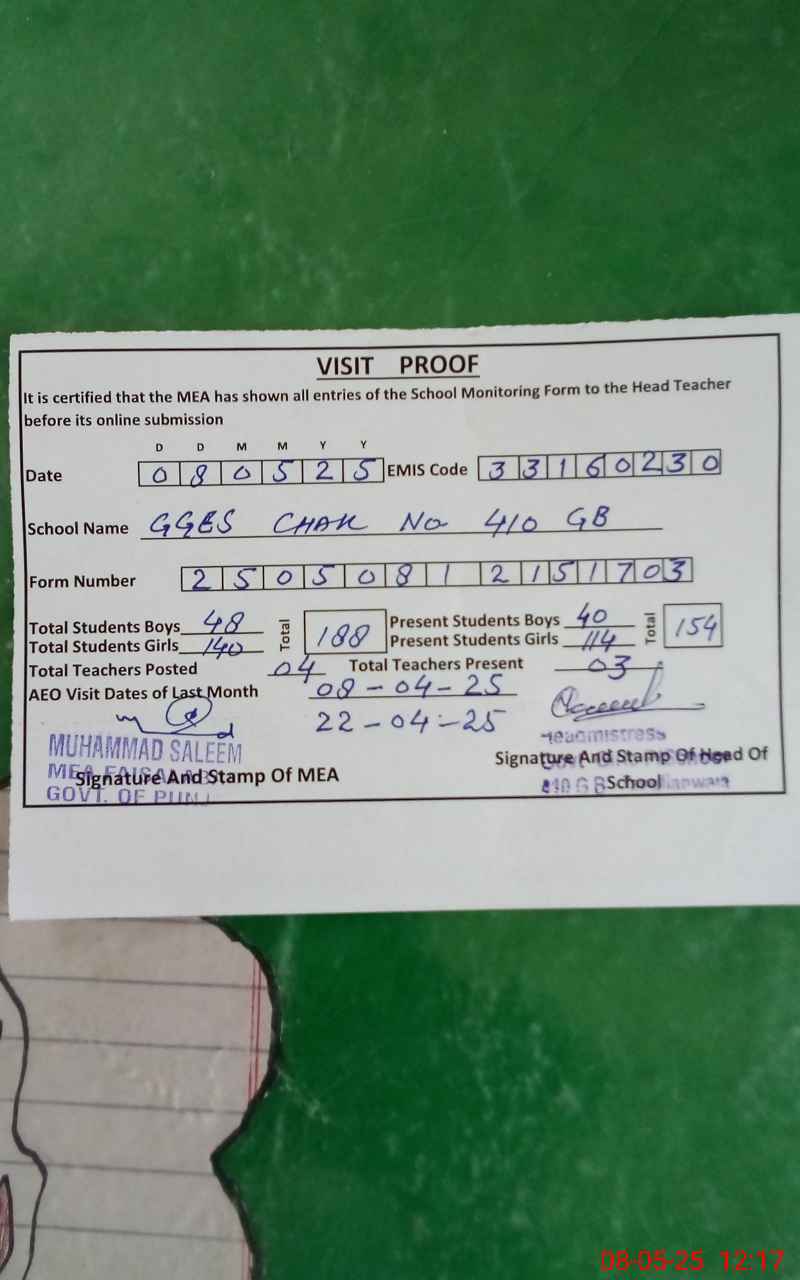 VISIT PROOF
It is certified that the MEA has shown all entries of the School Monitoring Form to the Head Teacher
before its online submission
D D M M Y Y
Date 0 8 0 5 2 5 EMIS Code 3 3 1 6 0 2 3 0
School Name GGES CHAK No 410 GB
Form Number 2 5 0 5 0 8 1 2 1 5 1 7 0 3
Total Students Boys 48 Total 188 Present Students Boys 40 Total 154
Total Students Girls 140 Present Students Girls 114
Total Teachers Posted 04 Total Teachers Present 03
AEO Visit Dates of Last Month 08-04-25
22-04-25
MUHAMMAD SALEEM Headmistress
Signature And Stamp Of MEA Signature And Stamp Of Head Of
MEA
GOVT. OF School
08-05-25 12:17